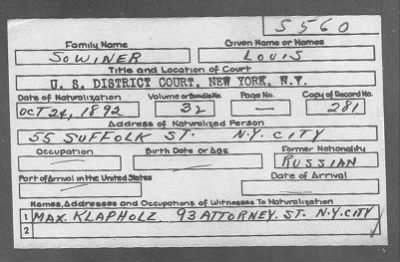 S 560
Family Name Given Name or Names
SOWINER LOUIS
Title and Location of Court
U. S. DISTRICT COURT, NEW YORK, N.Y.
Date of Naturalization Volume or Bundle No. Page No. Copy of Record No.
OCT 24, 1892 32 — 281
Address of Naturalized Person
55 SUFFOLK ST. N.Y. CITY
Occupation Birth Date or Age Former Nationality
RUSSIAN
Port of Arrival in the United States Date of Arrival
Names, Addresses and Occupations of Witnesses To Naturalization
1 MAX KLAPHOLZ 93 ATTORNEY. ST. N.Y. CITY
2